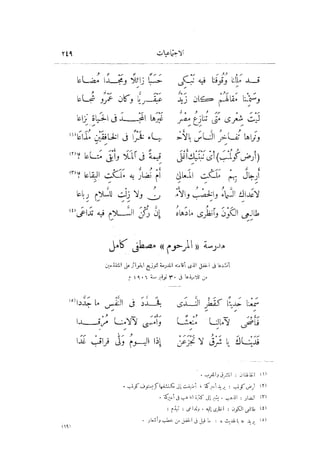 الاجتماعيات ٢٤٩
قد مللنا وقوفنا فيه نبكى حسبًا زائلًا ومجدًا مضاعا
وسئمنا مقالهم كان زيد عبقريًا وكان عمرو شجاعا
ليت شعرى متى تنازع مصر غيرها المجد فى الحياة نزاعا
ونراها تفاخر الناس بالأحـ ـياء فخرًا فى الخافقين مذاعا (١)
(أرض كولمب) أى نبتيك أغلى قيمة فى الملا وأبقى متاعا ؟ (٢)
أرجال بهم ملكت المعالى أم نضار به ملكت البقاعا ؟ (٣)
لا عداك السماء والخصب والأمـ ـن ولا زلت للسلام رباعا
طالعى الكون وانظرى ما دهاه إن ركن السلام فيه تداعى (٤)
مدرسة « المرحوم » مصطفى كامل
أنشدها فى الحفل الذى أقامته المدرسة لتوزيع الجوائز على المتقدمين
من تلاميذها فى ٣٠ نوفمبر سنة ١٩٠٦ م
سمعنا حديثًا كقطر الندى فجدد فى النفس ما جددا (٥)
فأضحى لآمالنا منعشًا وأمسى لآلامنا مرقدا
فديناك يا شرق لا تجزعن إذا اليوم ولى فراقب غدا
(١) الخافقان : المشرق والمغرب .
(٢) يريد أمريكا ، أضيفت إلى مكتشفها كرستوف كولمب .
(٣) النضار : الذهب . يشير إلى كثرة الذهب فى أمريكا .
(٤) طالعى الكون : انظرى إليه . وتداعى : تهدم .
(٥) يريد « بالحديث » : ما قيل فى الحفل من خطب وأشعار .